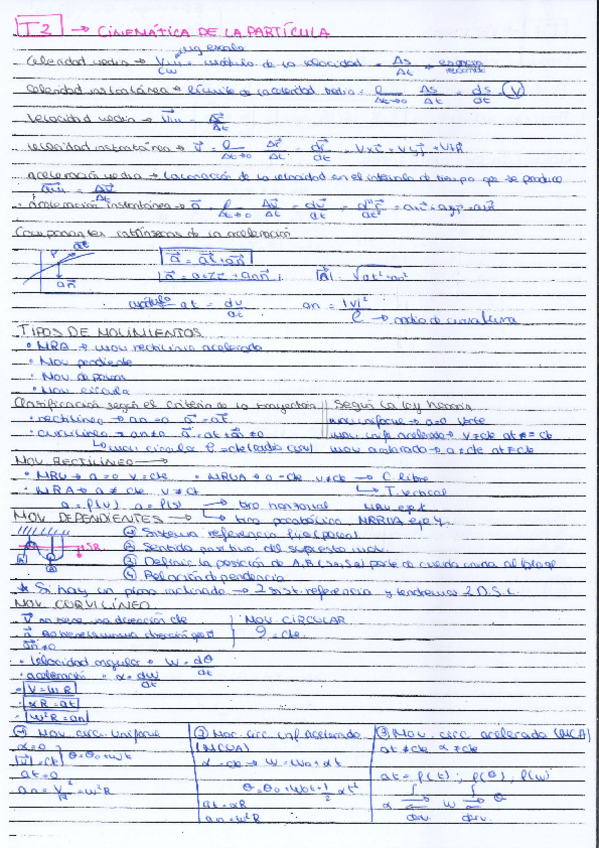 T2 → CINEMÁTICA DE LA PARTÍCULA
Celeridad media → Vm = módulo de la velocidad = Δs/Δt = espacio recorrido
Celeridad instantánea → límite de la celeridad media = l Δt→0 Δs/Δt = ds/dt = V
Velocidad media → Vm = Δr/Δt
Velocidad instantánea → v = l Δt→0 Δr/Δt = dr/dt = Vxi + Vyj + Vzk
aceleración media → variación de la velocidad en el intervalo de tiempo que se produce
am = Δv/Δt
Aceleración instantánea → a = l Δt→0 Δv/Δt = dv/dt
Componentes intrínsecas de la aceleración
P at
an
a = at + an
|a| = √at²+an²
módulo at = dv/dt an = |v|²/ρ → radio de curvatura
TIPOS DE MOVIMIENTOS
• MRA → mov rectilíneo acelerado
• Mov
• Mov
• Mov
Clasificación según el criterio de la trayectoria Según la ley horaria
• rectilíneo → an=0 a=at mov uniforme → a=0 v=cte
• curvilíneo → an≠0 a=at+an≠0 mov unif. acelerado → v≠cte at=cte
mov circular ρ=cte mov acelerado → a≠cte at≠cte
MOV RECTILÍNEO →
• MRU → a=0 v=cte • MRUA → a=cte v≠cte → C. libre
• MRA → a≠cte v≠cte → T. vertical
a=f(v) a=f(s) → tiro horizontal
MOV DEPENDIENTES → → tiro parabólico
① Sistema referencia fijo (polea)
SR
② Sentido positivo del supuesto mov.
A B
③ Definir la posición de A, B
④ Relación dependencia
* Si hay un plano inclinado → 2 sist. referencia y tendremos 2 D.S.L.
MOV CURVILÍNEO
V no tiene una dirección cte MOV CIRCULAR
ρ=cte
an≠0
• Velocidad angular • w = dθ/dt
• aceleración • α = dw/dt
• V=wR
• αR=at
• w²R=an
① Mov. circ. Uniforme
α=0
|v|=ct θ=θ0+wt
at=0
an = V²/R = w²R
② Mov. circ. unif. acelerado (MCUA)
α=cte → w=w0+αt
θ=θ0+w0t+1/2 αt²
at=αR
an=w²R
③ Mov. circ. acelerado (MCA)
at≠cte α≠cte
at=f(t); f(θ); f(w)
∫ ∫
α ⇄ w ⇄ θ
deriv. deriv.